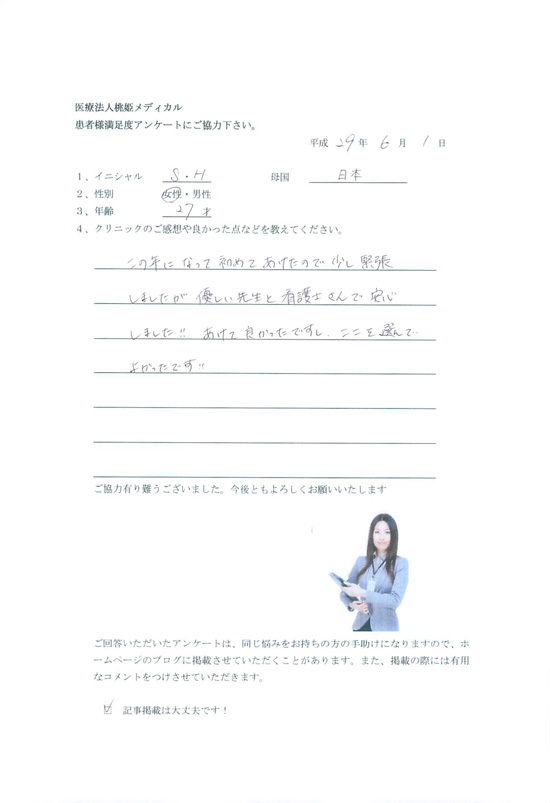 医療法人桃姫メディカル
患者様満足度アンケートにご協力下さい。
平成 29 年 6 月 1 日
1、イニシャル S・H 母国 日本
2、性別 女性・男性
3、年齢 27 才
4、クリニックのご感想や良かった点などを教えてください。
この年になって初めてあけたので少し緊張
しましたが優しい先生と看護士さんで安心
しました!! あけて良かったですし、ここを選んで
よかったです!!
ご協力有り難うございました。今後ともよろしくお願いいたします
ご回答いただいたアンケートは、同じ悩みをお持ちの方の手助けになりますので、ホ
ームページのブログに掲載させていただくことがあります。また、掲載の際には有用
なコメントをつけさせていただきます。
☑ 記事掲載は大丈夫です！